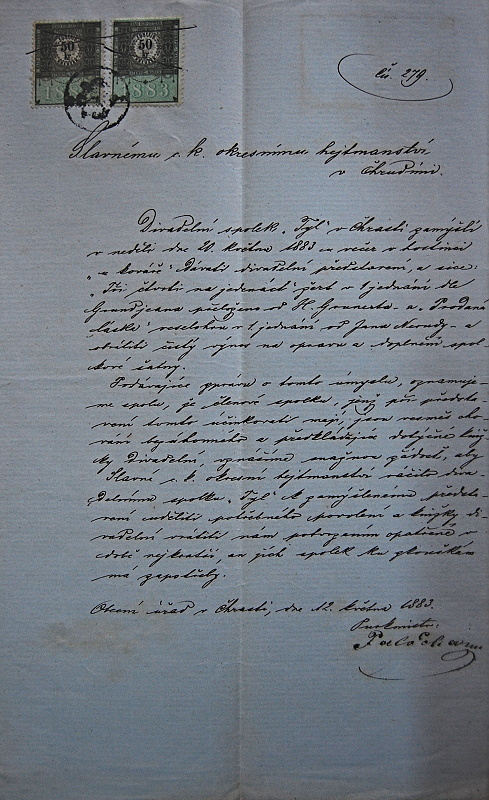 50 50
1883 1883
čís. 279.
Slavnému c. k. okresnímu hejtmanství
v Chrudimi.
Divadelní spolek „Tyl“ v Chrasti zamýšlí
v neděli dne 20. května 1883 večer v hostinci
„u kováře“ dávati divadelní představení, a sice:
„Tři čtvrti na jedenáct“ žert v 1 jednání dle
Grandjeana přeloženo od H. Grunerta a „Prodaná
láska“ veselohra v 1 jednání od Jana Nerudy a
obětiti čistý výnos na opravu a doplnění spol-
kové šatny.
Podávajíce zprávu o tomto úmyslu, oznamuje-
me spolu, že členové spolku, jenž při předsta-
vení tomto účinkovati mají, jsou vesměs cho-
vání bezúhonného a předkládajíce dotyčné kníž-
ky divadelní, vznášíme snažnou žádost, aby
Slavné c. k. okresní hejtmanství ráčilo diva-
delnímu spolku „Tyl“ k zamýšlenému předsta-
vení uděliti potřebného povolení a knížky di-
vadelní vrátiti nám potvrzením opatřené v
době nejkratší, an jich spolek ku zkouškám
má zapotřebí.
Obecní úřad v Chrasti, dne 12. května 1883.
Purkmistr: